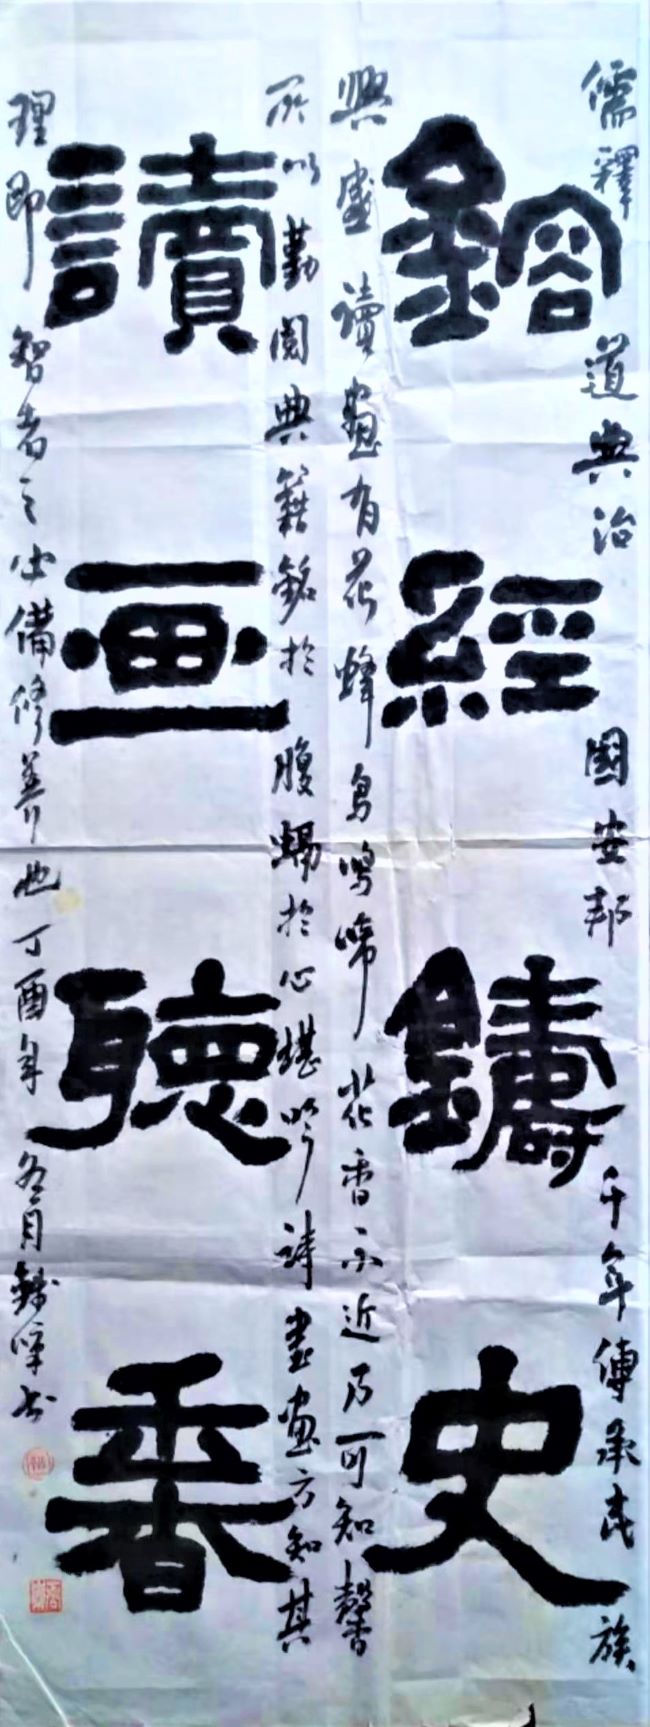 儒釋道典治國安邦千年傳承民族
鎔經鑄史
興盛讀畫有花蜂鳥鳴啼花香不近乃可知馨
所以勤閱典籍銘於腹於心堪吟詩書畫方知其
讀画聽香
理即智者之必備修養也丁酉年冬月峰书